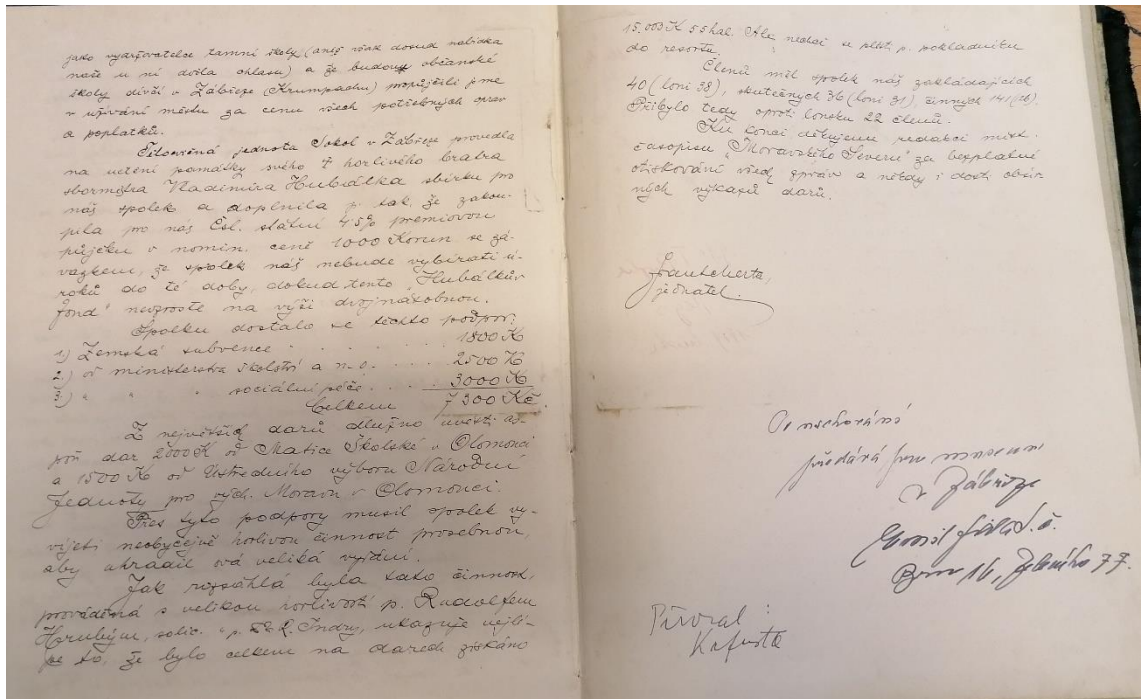 jako vydržovatelce tamní školy (aniž však dosud nabídka
naše u ní došla ohlasu) a že budovy občanské
školy dívčí v Zábřeze (Krumpachu) propůjčili jsme
v užívání městu za cenu všech potřebných oprav
a poplatků.
Tělocvičná jednota Sokol v Zábřeze provedla
na uctění památky svého † horlivého bratra
sbormistra Vladimíra Hubálka sbírku pro
náš spolek a doplnila ji tak, že zakou-
pila pro náš Čsl. státní 4.5% premiovou
půjčku v nomin. ceně 1000 Korun se zá-
vazkem, že spolek náš nebude vybírati ú-
roků do té doby, dokud tento "Hubálkův
fond" nevzroste na výši dvojnásobnou.
Spolku dostalo se těchto podpor:
1) Zemská subvence . . . . 1800 K
2.) od ministerstva školství a n. o. . . . 2500 K
3.) " " sociální péče . . . . 3000 K
Celkem 7300 Kč.
Z největších darů dlužno uvésti as-
poň dar 2000 K od Matice Školské v Olomouci
a 1500 K od Ústředního výboru Národní
Jednoty pro vých. Moravu v Olomouci.
Přes tyto podpory musil spolek vy-
víjeti neobyčejně horlivou činnost prosebnou,
aby uhradil svá veliká vydání.
Jak rozsáhlá byla tato činnost,
prováděná s velikou horlivostí p. Rudolfem
Hrubým, solic. p. R. Indry, ukazuje nejlé-
pe to, že bylo celkem na darech získáno
15.003 K 55 hal. Ale nedal se plésti p. pokladníku
do resortu.
Členů měl spolek náš zakládajících
40 (loni 38), skutečných 36 (loni 31), činných 141 (126).
Přibylo tedy oproti loňsku 22 členů.
Ku konci děkujeme redakci míst.
časopisu "Moravského Severu" za bezplatné
otiskování všech zpráv a někdy i dosti obšír-
ných výkazů darů.
jednatel.
V uschování
předává pro museum
v Zábřeze
Brno 16, Zeleného 77.
Převzal: